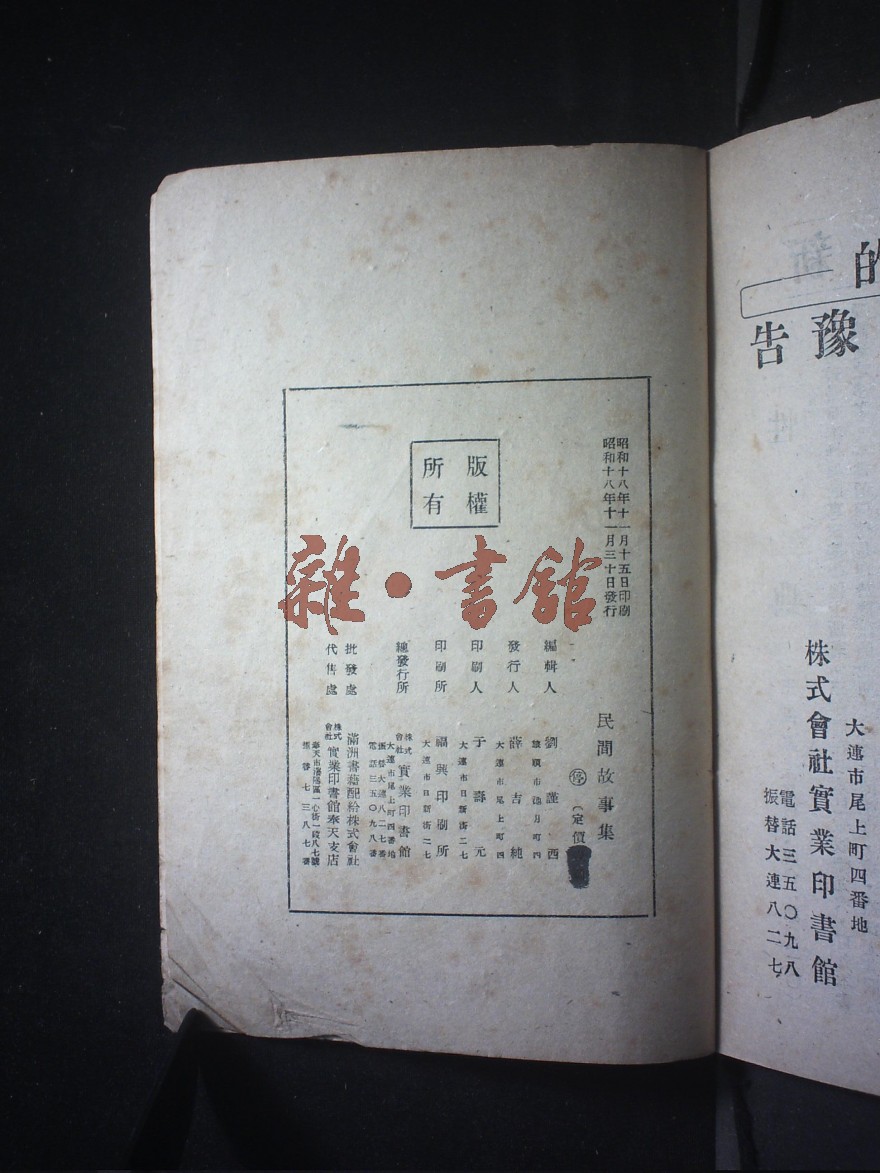 的
豫告
大連市尾上町四番地
株式會社實業印書館
電話三五〇九八
振替大連八二七
昭和十八年十一月十五日印刷
昭和十八年十一月三十日發行
版權所有
民間故事集
㊡(定價
編輯人 劉謹西
發行人 薛吉純
大連市尾上町四
印刷人 于壽元
大連市日新街二七
印刷所 福興印刷所
大連市日新街二七
總發行所 株式會社 實業印書館
大連市尾上町四番地
振替大連八二七番
電話三五〇九八番
批發處 滿洲書籍配給株式會社
代售處 株式會社 實業印書館奉天支店
雜·書館